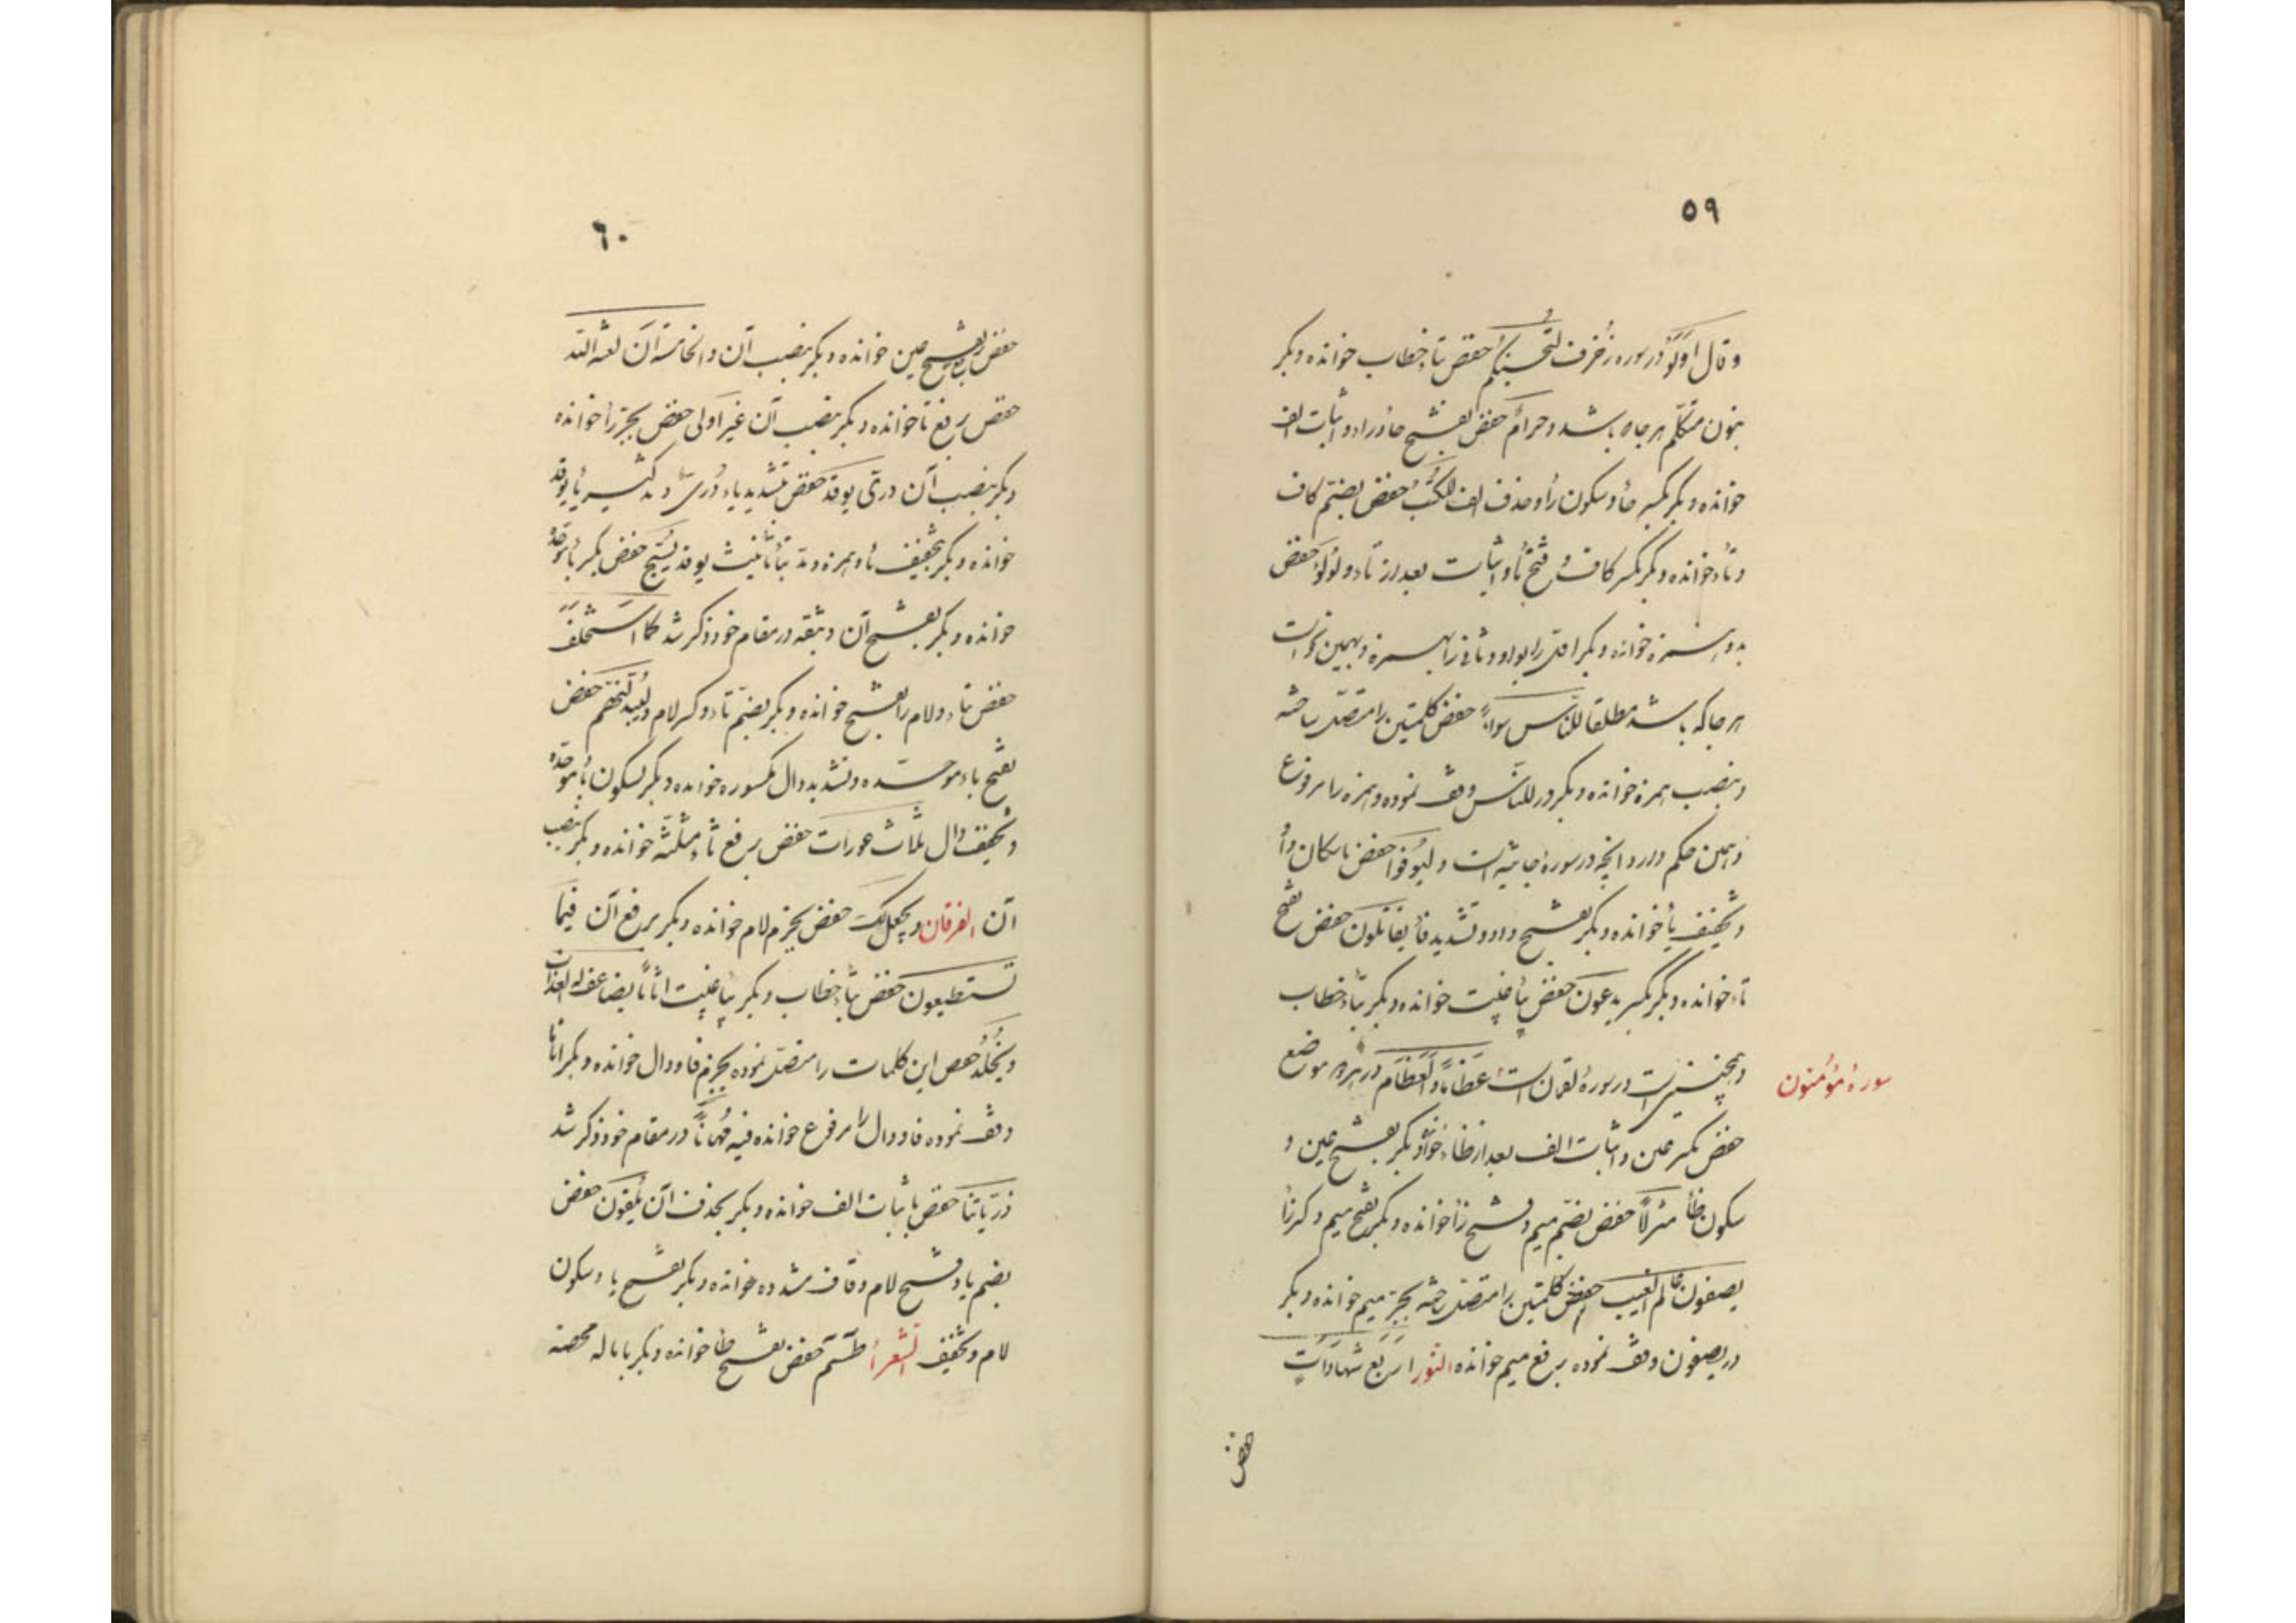 ۵۹
وقال اولو در سوره زخرف لتحصنکم حفص بتاء خطاب خوانده و بکر
بنون متکلم هر جا باشد و حرام حفص بفتح حاء و راء و اثبات الف
خوانده و بکر بکسر حاء و سکون راء و حذف الف للکتب حفص بضم کاف
و تاء خوانده و بکر بکسر کاف و فتح تاء و اثبات بعد از تاء و لؤلؤ حفص
بدو همزه خوانده و بکر اول را بواو و ثانی را بهمزه و بهمین نحو است
هر جا که باشد مطلقا للناس سواء حفص کلمتین را متصل ساخته
و بنصب همزه خوانده و بکر در للناس وقف نموده و همزه را مرفوع
و همین حکم دارد آنچه در سورهٔ جاثیه است و لیوفوا حفص باسکان واو
و تخفیف فاء خوانده و بکر بفتح واو و تشدید فاء یقاتلون حفص بفتح
تاء خوانده و بکر بکسر یدعون حفص بیاء غیبت خوانده و بکر بتاء خطاب
و همچنین است در سورهٔ لقمان است عظاماً و العظام در هر دو موضع
سورهٔ مؤمنون
حفص بکسر عین و اثبات الف بعد از ظاء خوانده و بکر بفتح عین و
سکون ظاء منزلاً حفص بضم میم و فتح زاء خوانده و بکر بفتح میم و کسر زاء
یصفون عالم الغیب حفص کلمتین را متصل ساخته بجر میم خوانده و بکر
در یصفون وقف نموده برفع میم خوانده النور اربع شهادات
حفص
۶۰
حفص عین خوانده و بکر بنصب آن و الخامسة أن لعنة الله
حفص برفع تا خوانده و بکر بنصب آن غیر اولی حفص بجر راء خوانده
و بکر بنصب آن دری یوقد حفص بتشدید یاء دری و یاء یوقد
خوانده و بکر بتخفیف یاء و همزه و مد بتاء تأنیث یوقد یسبح حفص بکسر باء موحده
خوانده و بکر بفتح آن و یتقه در مقام خود ذکر شد کما استخلف
حفص تاء و لام را بفتح خوانده و بکر بضم تاء و کسر لام و لیبدلنهم حفص
بفتح باء موحده و تشدید دال مکسوره خوانده و بکر بسکون باء موحده
و تخفیف دال ثلاث عورات حفص برفع ثاء مثلثه خوانده و بکر بنصب
آن الفرقان و یجعل لک حفص بجزم لام خوانده و بکر برفع آن فیما
تستطیعون حفص بتاء خطاب و بکر بیاء غیبت اثاماً یضاعف له العذاب
و یخلد حفص این کلمات را متصل نموده بجزم فا و دال خوانده و بکر اثاما
وقف نموده فا و دال را مرفوع خوانده فیه مهاناً در مقام خود ذکر شد
ذریاتنا حفص باثبات الف خوانده و بکر بحذف آن یلقون حفص
بضم یا و فتح لام و قاف مشدده خوانده و بکر بفتح یا و سکون
لام و تخفیف الشعراء طسم حفص بفتح طا خوانده و بکر باماله محضه